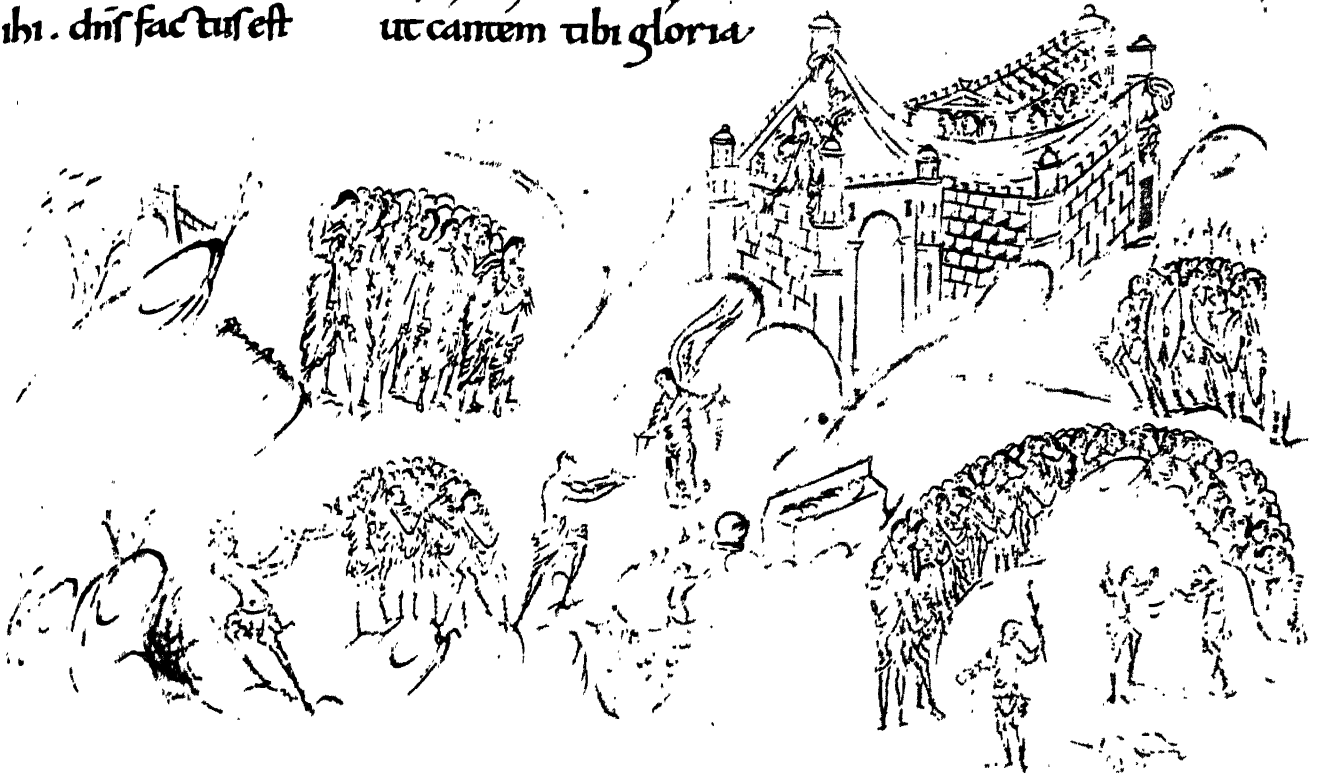 ihi. dn̄s factus est
ut cantem tibi gloria